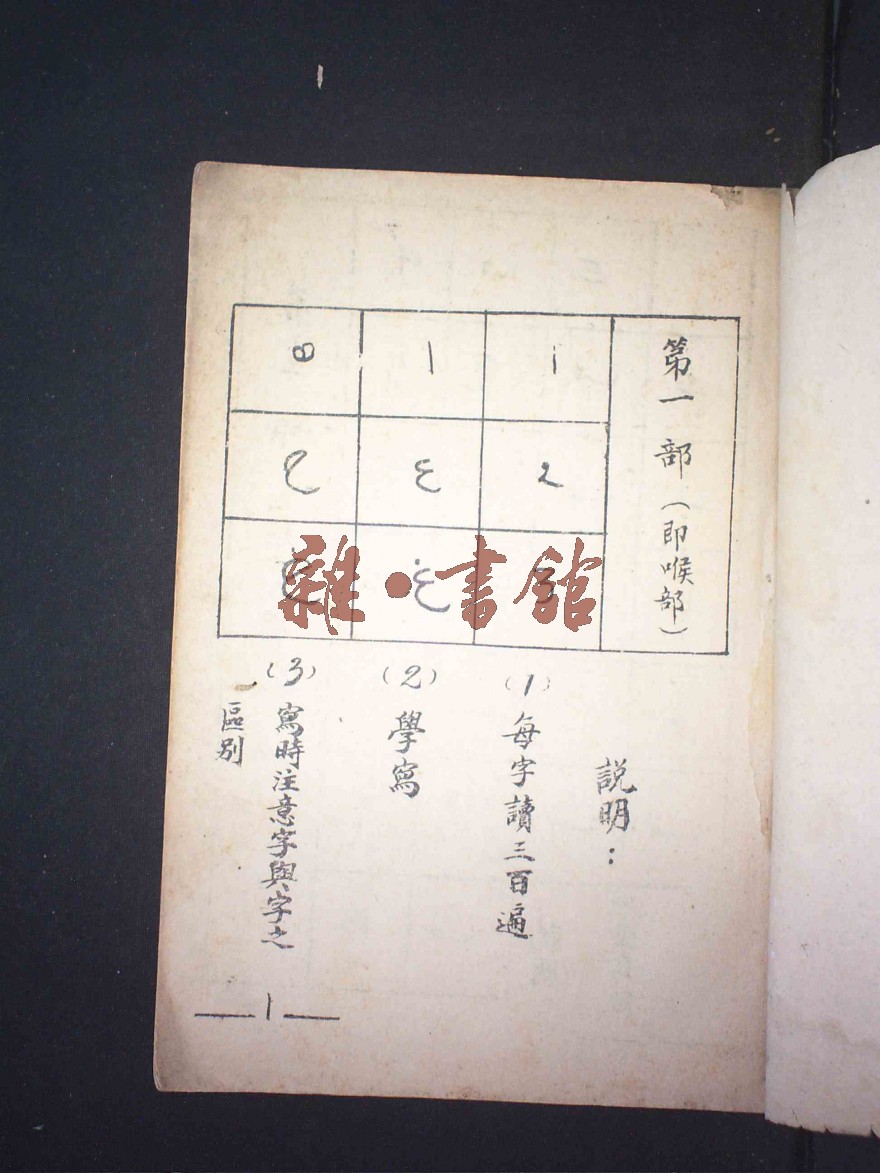 第一部（即喉部）
1 ا ه
2 ع ح
غ خ
雜·書館
説明：
(1) 每字讀三百遍
(2) 學寫
(3) 寫時注意字與字之
區別
— 1 —